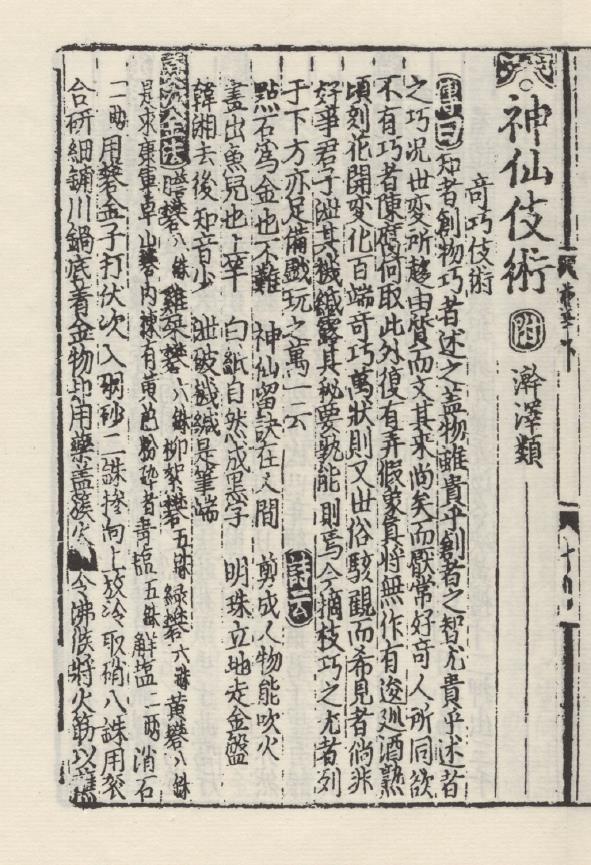 神仙伎術 附 澣澤類
奇巧伎術
傳曰 知者創物巧者述之蓋物雖貴乎創者之智尤貴乎述者
之巧况世变所趍由質而文其来尚矣而厭常好奇人所同欲
不有巧者陳腐何取此外復有弄假象真将無作有逡廵酒熟
頃刻花開変化百端奇巧萬狀則又世俗駭觀而希見者倘非
好事君子泄其機緘露其秘要孰能則焉今摘技巧之尤者列
于下方亦足備戲玩之萬一云 詩云
點石為金也不難 神仙留訣在人間 剪成人物能吹火
畫出魚兒也上竿 白紙自然成黒字 明珠立地走金盤
韓湘去後知音少 泄破機緘是筆端
膽礬八銖雞屎礬八銖柳絮礬五銖緑礬六銖黄礬八銖
是求棗軍卓山礬内揀有黄色粉碎者青塩五銖解塩二兩消石
一兩用礬金子打伏次入硇砂二銖摻向上放冷取硝八銖用
合研細鋪川鍋底著金物却用藥盖簇火 令沸候將火筯以